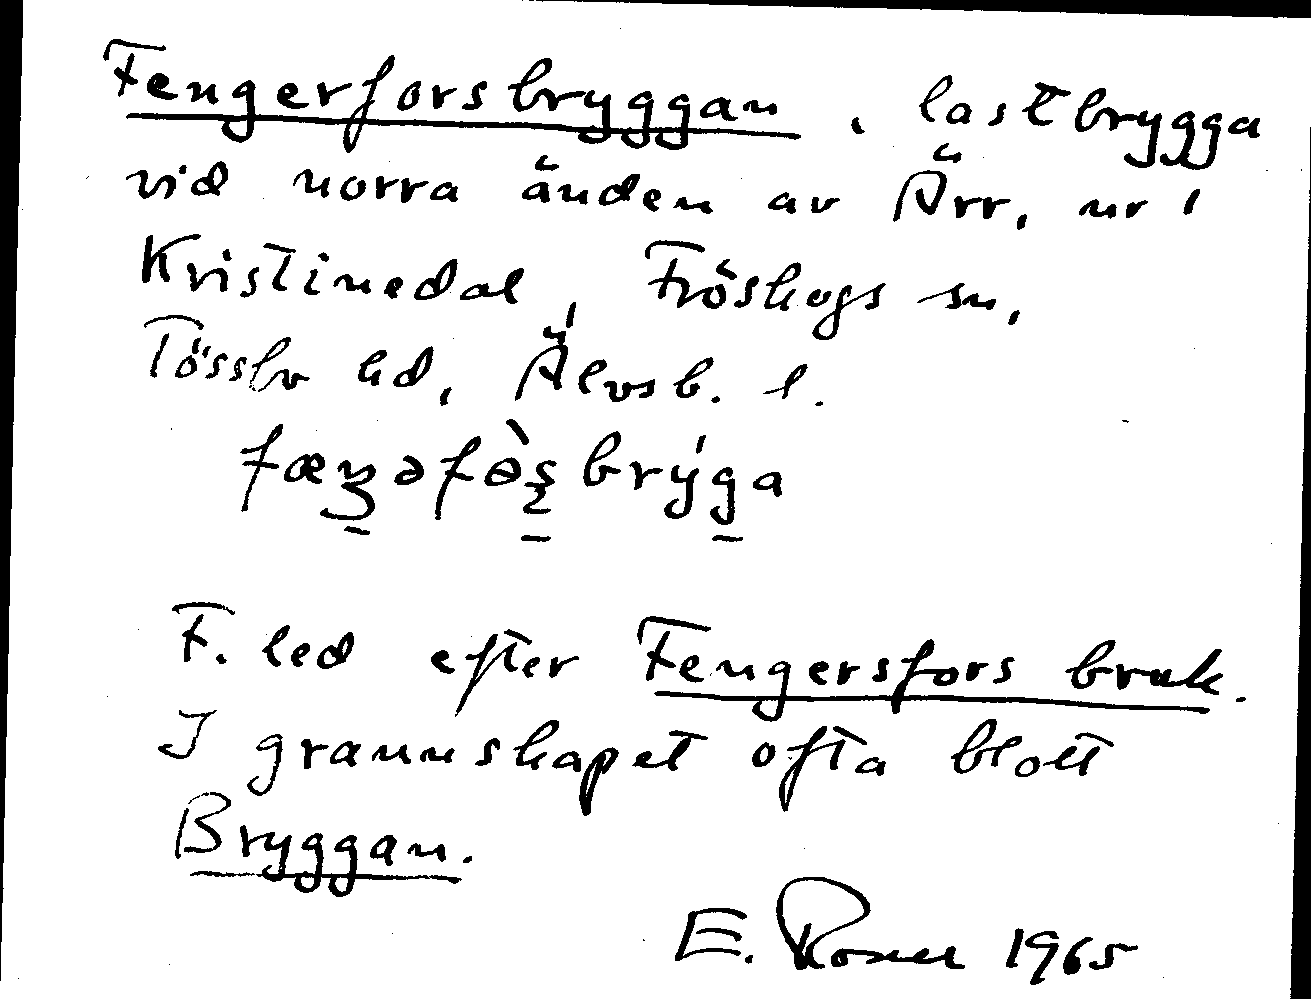 Fengerforsbryggan, lastbrygga
vid norra änden av Ärr, nr 1
Kristinedal, Fröskogs sn,
Tössbo hd, Älvsb. l.
F. led efter Fengersfors bruk.
I grannskapet ofta blott
Bryggan.
E. Rosell 1965